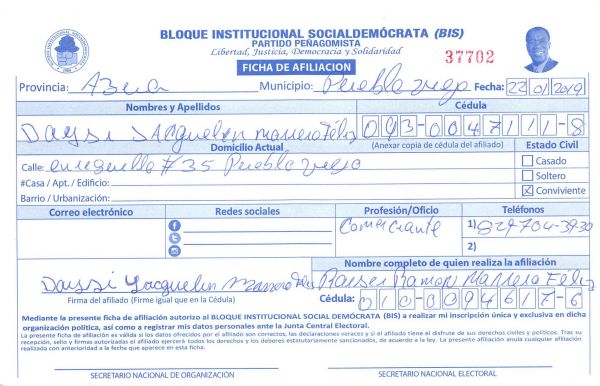 BLOQUE INSTITUCIONAL SOCIALDEMÓCRATA (BIS)
PARTIDO PEÑAGOMISTA
Libertad, Justicia, Democracia y Solidaridad
37702
FICHA DE AFILIACION
Provincia: Azua Municipio: Pueblo viejo Fecha: 22/01/2019
Nombres y Apellidos Cédula
Dayssi Jacquelin Marrero Féliz 093-0047111-8
Domicilio Actual (Anexar copia de cédula del afiliado) Estado Civil
Calle: enrequillo # 35 Pueblo viejo Casado
#Casa / Apt. / Edificio: Soltero
Barrio / Urbanización: Conviviente
Correo electrónico Redes sociales Profesión/Oficio Teléfonos
Comerciante 1) 829704-3930
2)
Nombre completo de quien realiza la afiliación
Dayssi Jacquelin Marrero Ramon Marrero Féliz
Firma del afiliado (Firme igual que en la Cédula) Cédula: 010-0094617-6
Mediante la presente ficha de afiliación autorizo al BLOQUE INSTITUCIONAL SOCIAL DEMÓCRATA (BIS) a realizar mi inscripción única y exclusiva en dicha
organización política, así como a registrar mis datos personales ante la Junta Central Electoral.
La presente ficha de afiliación es válida si los datos ofrecidos por el afiliado son correctos, las declaraciones veraces y si el afiliado tiene el disfrute de sus derechos civiles y políticos. Tras su
recepción, sello y firmas autorizadas el afiliado ejercerá todos los derechos y deberes estatutariamente sancionados, de acuerdo a la ley. La presente afiliación anula cualquier afiliación
realizada con anterioridad a la fecha que aparece en esta ficha.
SECRETARIO NACIONAL DE ORGANIZACIÓN SECRETARIO NACIONAL ELECTORAL